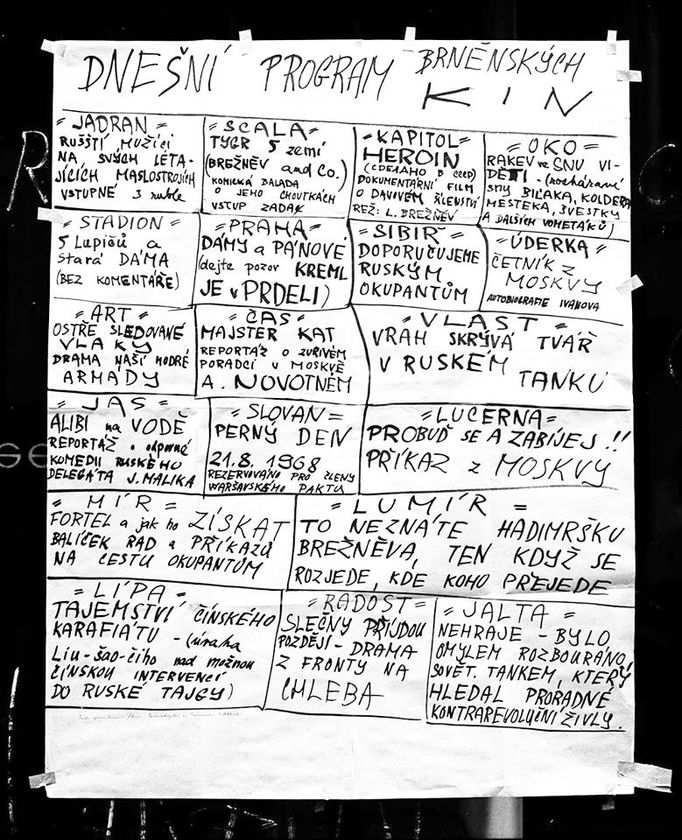 DNEŠNÍ PROGRAM BRNĚNSKÝCH
KIN
= JADRAN =
RUŠŠTÍ MUŽÍCI
NA SVÝCH LÉTA-
JÍCÍCH MASLOSTROJÍCH
VSTUPNÉ 3 ruble
= SCALA =
TYGR 5 zemí
(BREŽNĚV and Co.)
KOMICKÁ BALADA
O JEHO CHOUTKÁCH
VSTUP ZADAX
= KAPITOL =
HEROIN
(СДЕЛАНО В СССР)
DOKUMENTÁRNÍ FILM
O DAVOVÉM ŠÍLENSTVÍ
REŽ: L. BREŽNĚV
= OKO =
RAKEV ve SNU VI-
DĚTI - (rozhárané
sny BILAKA, KOLDERA
MESTEKA, ŠVESTKY
A DALŠÍCH VOMETÁKŮ)
= STADION =
5 Lupičů a
stará DÁMA
(BEZ KOMENTÁŘE)
= PRAHA =
DÁMY a PÁNOVÉ
(dejte pozor KREML
JE v PRDELI)
= SIBIŘ =
DOPORUČUJEME
RUSKÝM
OKUPANTŮM
= ÚDERKA =
ČETNÍK z
MOSKVY
AUTOBIOGRAFIE IVANOVA
= ART =
OSTŘE SLEDOVANÉ
VLAKY
DRAMA NAŠÍ MODRÉ
ARMÁDY
= ČAS =
MAJSTER KAT
REPORTÁŽ O ZUŘIVÉM
PORADCI V MOSKVĚ
A. NOVOTNÉM
= VLAST =
VRAH SKRÝVÁ TVÁŘ
V RUSKÉM
TANKU
= JAS =
ALIBI na VODĚ
REPORTÁŽ o odporné
KOMEDII RUSKÉHO
DELEGÁTA J. MALIKA
= SLOVAN =
PERNÝ DEN
21.8. 1968
REZERVOVÁNO PRO ČLENY
WARŠAVSKÉHO PAKTU
= LUCERNA =
PROBUĎ SE A ZABÍJEJ !!
PŘÍKAZ z MOSKVY
= MÍR =
FORTEL a jak ho ZÍSKAT
BALÍČEK RAD a PŘÍKAZŮ
NA CESTU OKUPANTŮM
= LUMÍR =
TO NEZNÁTE HADIMRŠKU
BREŽNĚVA, TEN KDYŽ SE
ROZJEDE, KDE KOHO PŘEJEDE
= LÍPA =
TAJEMSTVÍ ČÍNSKÉHO
KARAFIÁTU - (úvaha
Liu-šao-čiho nad možnou
ČÍNSKOU INTERVENCÍ
DO RUSKÉ TAJGY)
= RADOST =
SLEČNY PŘIJDOU
POZDĚJI - DRAMA
Z FRONTY NA
CHLEBA
= JALTA =
NEHRAJE - BYLO
OMYLEM ROZBOURÁNO
SOVĚT. TANKEM, KTERÝ
HLEDAL PRORADNÉ
KONTRAREVOLUČNÍ ŽIVLY.